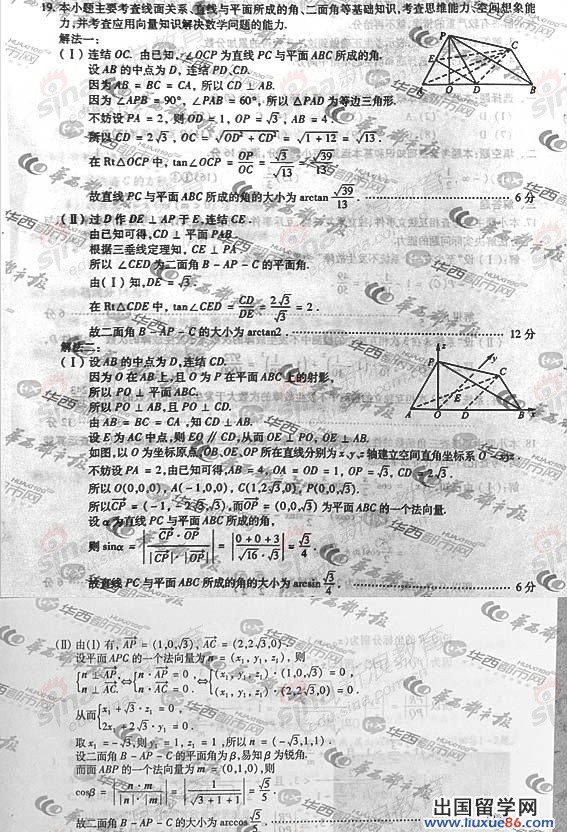 19. 本小题主要考查线面关系、直线与平面所成的角、二面角等基础知识,考查思维能力、空间想象能
力,并考查应用向量知识解决数学问题的能力.
解法一:
(Ⅰ) 连结 OC. 由已知, ∠OCP 为直线 PC 与平面 ABC 所成的角.
设 AB 的中点为 D, 连结 PD、CD.
因为 AB = BC = CA, 所以 CD ⊥ AB.
因为 ∠APB = 90°, ∠PAB = 60°, 所以 △PAD 为等边三角形.
不妨设 PA = 2, 则 OD = 1, OP = √3, AB = 4.
所以 CD = 2√3, OC = √(OD² + CD²) = √(1 + 12) = √13.
在 Rt△OCP 中, tan∠OCP = OP/OC = √3/√13 = √39/13.
故直线 PC 与平面 ABC 所成的角的大小为 arctan √39/13. …… 6 分
(Ⅱ) 过 D 作 DE ⊥ AP 于 E, 连结 CE.
由已知可得, CD ⊥ 平面 PAB.
根据三垂线定理知, CE ⊥ PA.
所以 ∠CED 为二面角 B - AP - C 的平面角.
由(Ⅰ)知, DE = √3.
在 Rt△CDE 中, tan∠CED = CD/DE = 2√3/√3 = 2.
故二面角 B - AP - C 的大小为 arctan2. …… 12 分
解法二:
(Ⅰ) 设 AB 的中点为 D, 连结 CD.
因为 O 在 AB 上, 且 O 为 P 在平面 ABC 上的射影,
所以 PO ⊥ 平面 ABC.
所以 PO ⊥ AB, 且 PO ⊥ CD.
由 AB = BC = CA, 知 CD ⊥ AB.
设 E 为 AC 中点, 则 EO ∥ CD, 从而 OE ⊥ PO, OE ⊥ AB.
如图, 以 O 为坐标原点, OB、OE、OP 所在直线分别为 x、y、z 轴建立空间直角坐标系 O - xyz.
不妨设 PA = 2, 由已知可得, AB = 4, OA = OD = 1, OP = √3, CD = 2√3.
所以 O(0,0,0), A(-1,0,0), C(1,2√3,0), P(0,0,√3).
所以 CP = (-1, -2√3, √3), 而 OP = (0,0,√3) 为平面 ABC 的一个法向量.
设 α 为直线 PC 与平面 ABC 所成的角,
则 sinα = |CP · OP / |CP| · |OP|| = |0 + 0 + 3 / √16 · √3| = √3/4.
故直线 PC 与平面 ABC 所成的角的大小为 arcsin √3/4. …… 6 分
(Ⅱ) 由(Ⅰ)有, AP = (1,0,√3), AC = (2,2√3,0).
设平面 APC 的一个法向量为 n = (x₁, y₁, z₁), 则
{n ⊥ AP, n ⊥ AC. ⇔ {n · AP = 0, n · AC = 0. ⇔ {(x₁, y₁, z₁) · (1,0,√3) = 0, (x₁, y₁, z₁) · (2,2√3,0) = 0.
从而 {x₁ + √3 · z₁ = 0, 2x₁ + 2√3 · y₁ = 0.
取 x₁ = -√3, 则 y₁ = 1, z₁ = 1, 所以 n = (-√3,1,1).
设二面角 B - AP - C 的平面角为 β, 易知 β 为锐角.
而面 ABP 的一个法向量为 m = (0,1,0), 则
cosβ = |n · m / |n| · |m|| = |1 / √(3 + 1 + 1)| = √5/5.
故二面角 B - AP - C 的大小为 arccos √5/5.
出国留学网
www.liuxue86.com